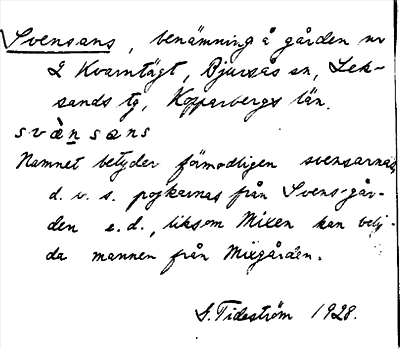 Svensans, benämning å gården nr
2 Kvarntägt, Bjursås sn, Lek-
sands tg, Kopparbergs län.
svä̀nsans
Namnet betyder förmodligen svensarnas,
d. v. s. pojkarnas från Svens-går-
den e.d., liksom Mixen kan bety-
da mannen från Mixgården.
S. Tideström 1928.